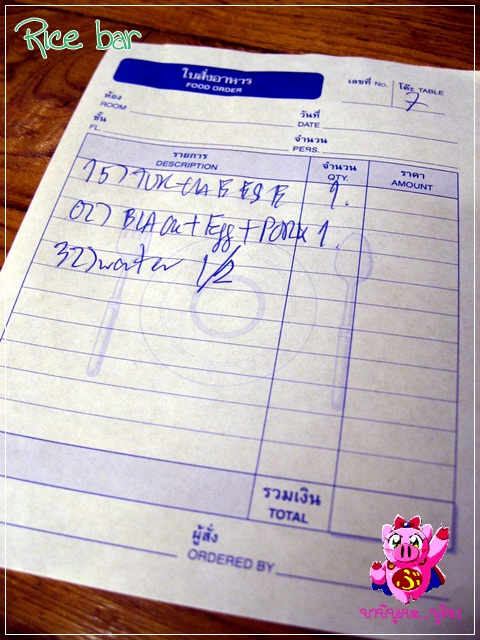 Rice bar
ใบสั่งอาหาร
FOOD ORDER
เลขที่ No.
โต๊ะ TABLE
7
ห้อง
ROOM
วันที่
DATE
ชั้น
FL.
จำนวน
PERS.
รายการ
DESCRIPTION
จำนวน
QTY.
ราคา
AMOUNT
15) 1.
02) BLACK + Egg + PORK 1.
32) water 1/2
รวมเงิน
TOTAL
ผู้สั่ง
ORDERED BY